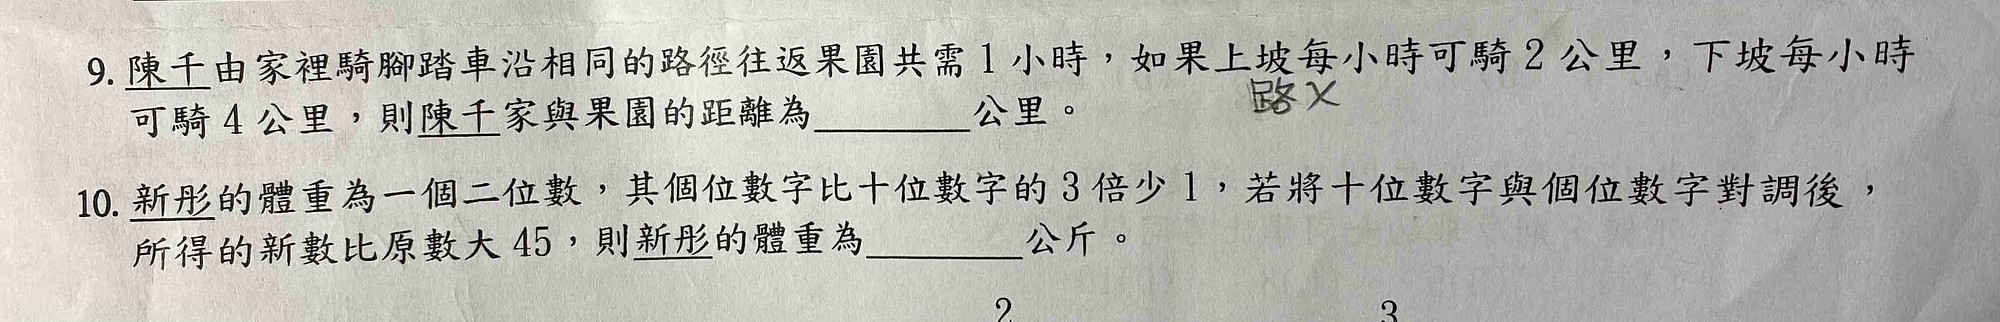 9. 陳千由家裡騎腳踏車沿相同的路徑往返果園共需1小時，如果上坡每小時可騎2公里，下坡每小時
路×
可騎4公里，則陳千家與果園的距離為________公里。
10. 新彤的體重為一個二位數，其個位數字比十位數字的3倍少1，若將十位數字與個位數字對調後，
所得的新數比原數大45，則新彤的體重為________公斤。
2 3